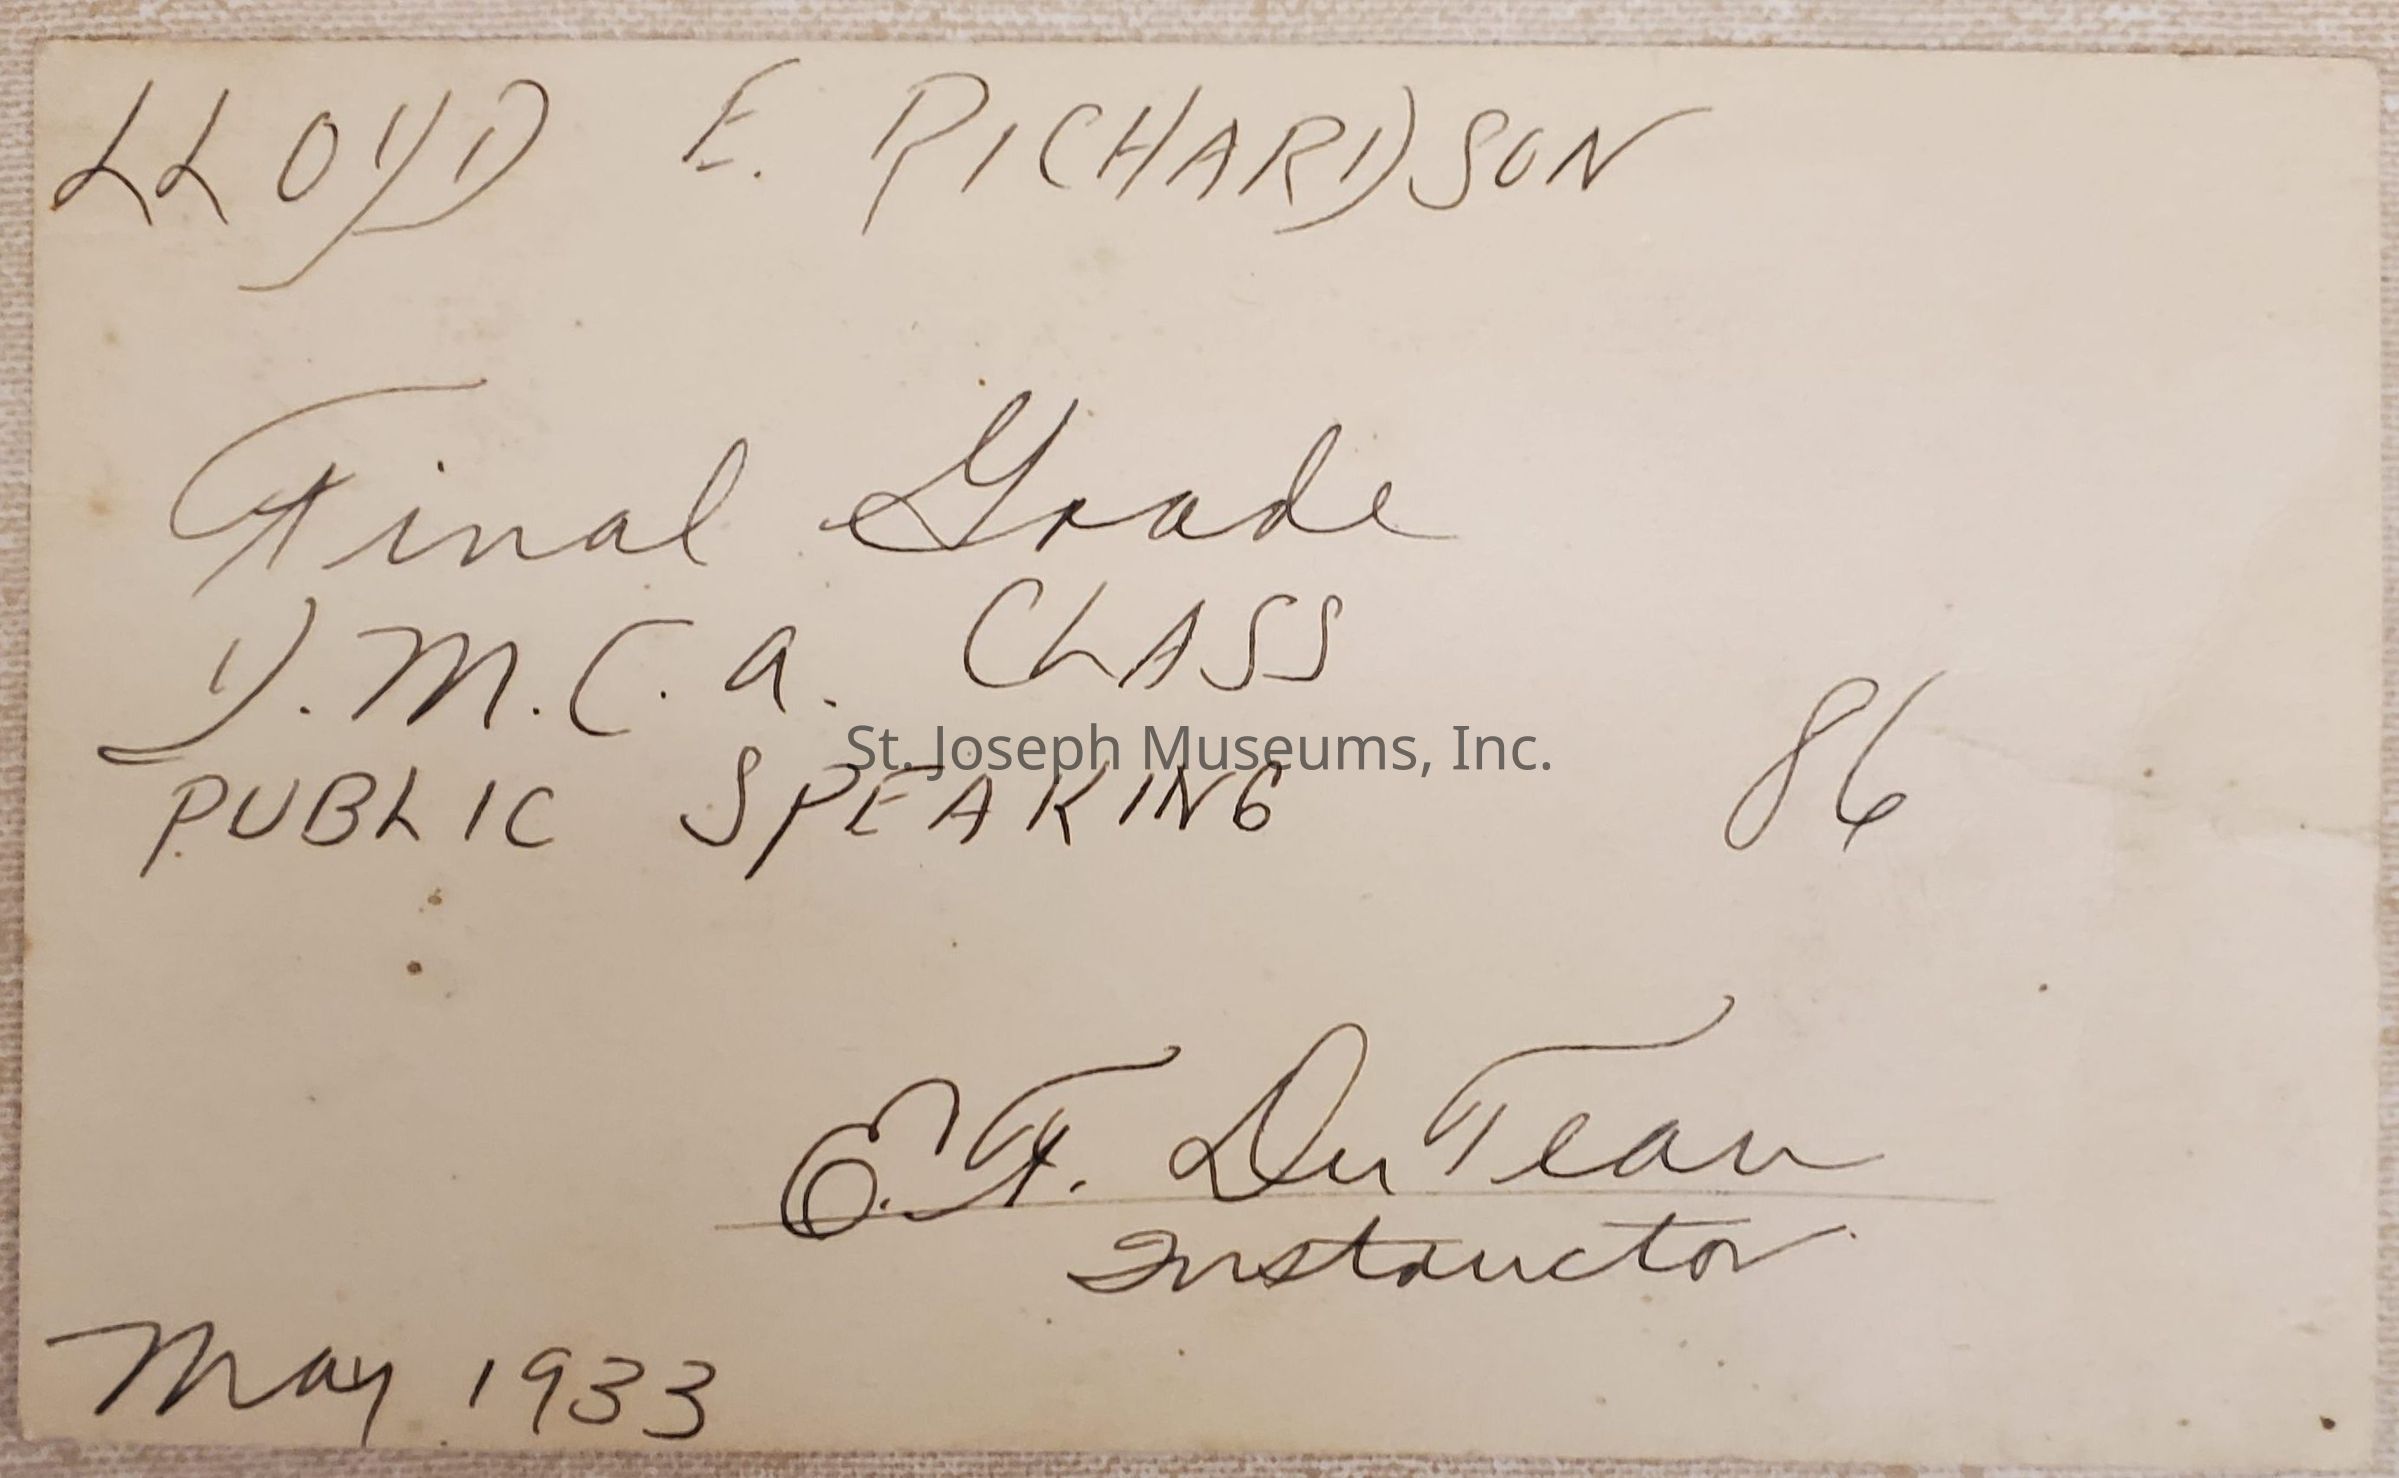 LLOYD E. RICHARDSON
Final Grade
Y.M.C.A. CLASS
St. Joseph Museums, Inc.
PUBLIC SPEAKING 86
E.F. DuTeau
Instructor
May 1933